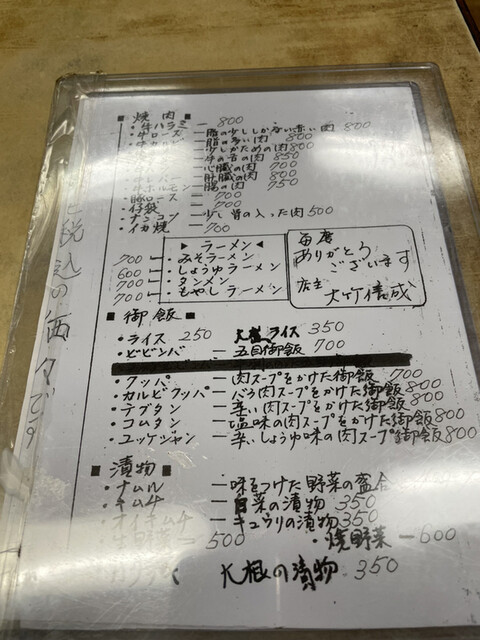 ■ 焼肉 ■
・牛ハラミー 800
・牛ロース 脂の少ししかない赤い肉 800
・牛カルビ 脂の多い肉 800
少しかための肉 800
牛の舌の肉 850
心臓の肉 700
レバー 肝臓の肉 800
牛ホルモン 腸の肉 750
・豚ロース 700
・仔袋 700
・ナンコツ 少し骨の入った肉 500
・イカ焼 700
▶ ラーメン ◀
700 ・みそラーメン
600 ・しょうゆラーメン
700 ・タンメン
700 ・もやしラーメン
毎度
ありがとう
ございます
店主
税込の価
■ 御飯 ■
・ライス 250 大盛ライス 350
・ビビンバー 五目御飯 700
・クッパー 肉スープをかけた御飯 700
・カルビクッパー バラ肉スープをかけた御飯 800
・テグタン 辛い肉スープをかけた御飯 800
・コムタン 塩味の肉スープをかけた御飯 800
・ユッケジャン 辛いしょうゆ味の肉スープ御飯 800
■ 漬物 ■
・ナムル 味をつけた野菜の盛合
・キムチ 白菜の漬物 350
・オイキムチ キュウリの漬物 350
500 ・焼野菜 600
大根の漬物 350